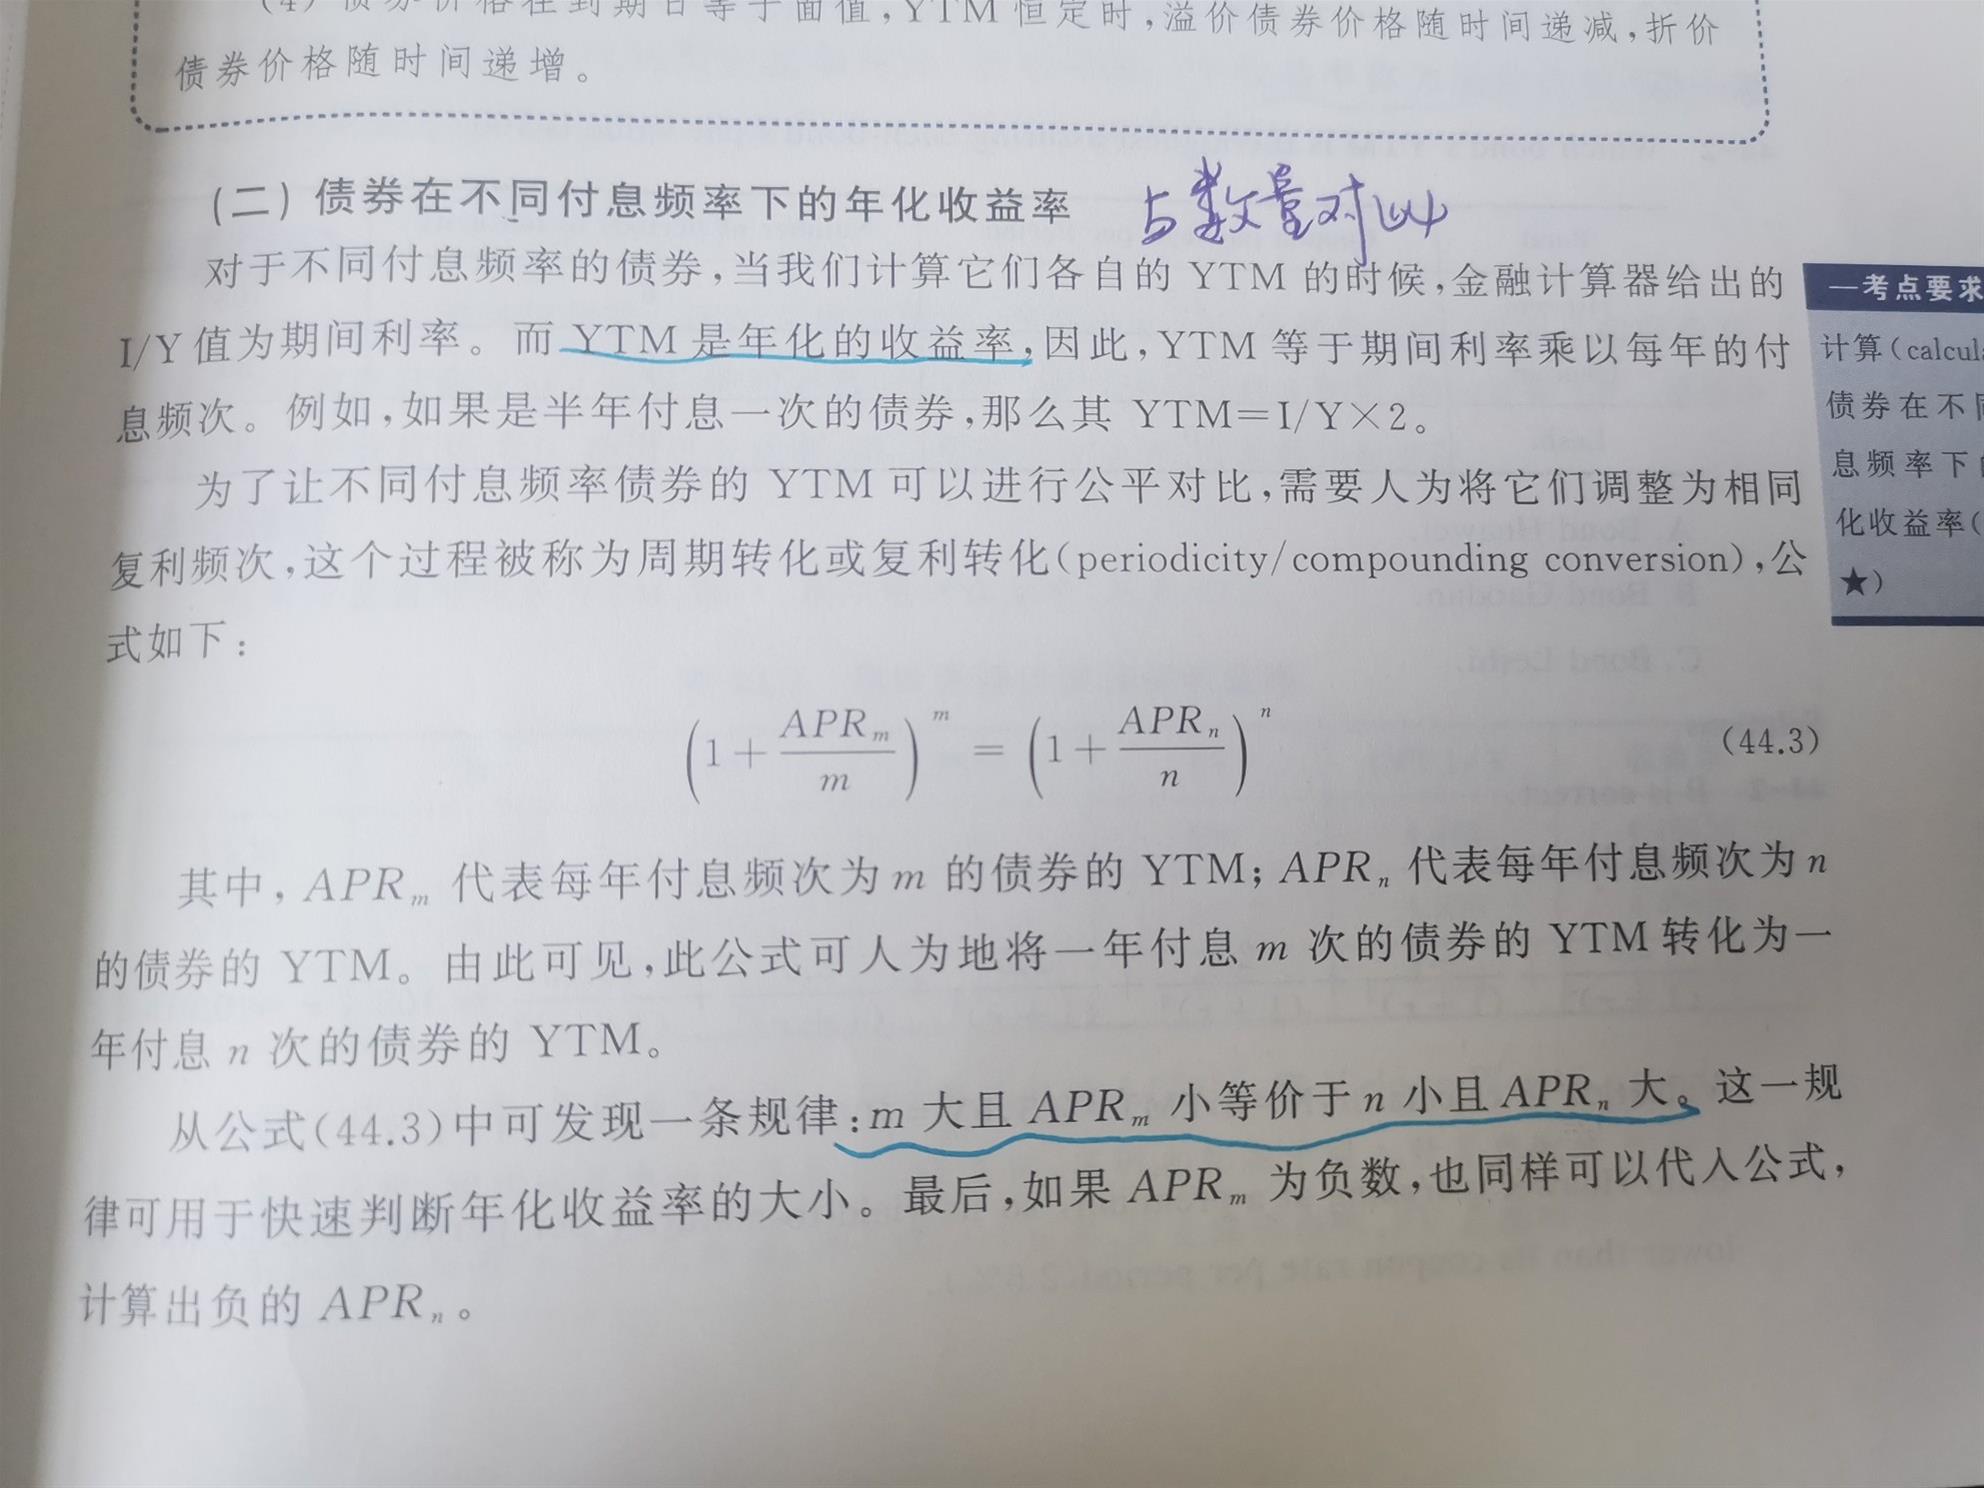 (4) 债券价格在到期日等于面值,YTM 恒定时,溢价债券价格随时间递减,折价
债券价格随时间递增。
(二) 债券在不同付息频率下的年化收益率
与数量对比
对于不同付息频率的债券,当我们计算它们各自的 YTM 的时候,金融计算器给出的
I/Y 值为期间利率。而 YTM 是年化的收益率,因此,YTM 等于期间利率乘以每年的付
息频次。例如,如果是半年付息一次的债券,那么其 YTM=I/Y×2。
为了让不同付息频率债券的 YTM 可以进行公平对比,需要人为将它们调整为相同
复利频次,这个过程被称为周期转化或复利转化(periodicity/compounding conversion),公
式如下:
(1+APRₘ/m)ᵐ = (1+APRₙ/n)ⁿ (44.3)
其中, APRₘ 代表每年付息频次为 m 的债券的 YTM; APRₙ 代表每年付息频次为 n
的债券的 YTM。由此可见,此公式可人为地将一年付息 m 次的债券的 YTM 转化为一
年付息 n 次的债券的 YTM。
从公式(44.3)中可发现一条规律:m 大且 APRₘ 小等价于 n 小且 APRₙ 大。这一规
律可用于快速判断年化收益率的大小。最后,如果 APRₘ 为负数,也同样可以代入公式,
计算出负的 APRₙ。
—考点要求
计算(calcul
债券在不
息频率下
化收益率(
★)